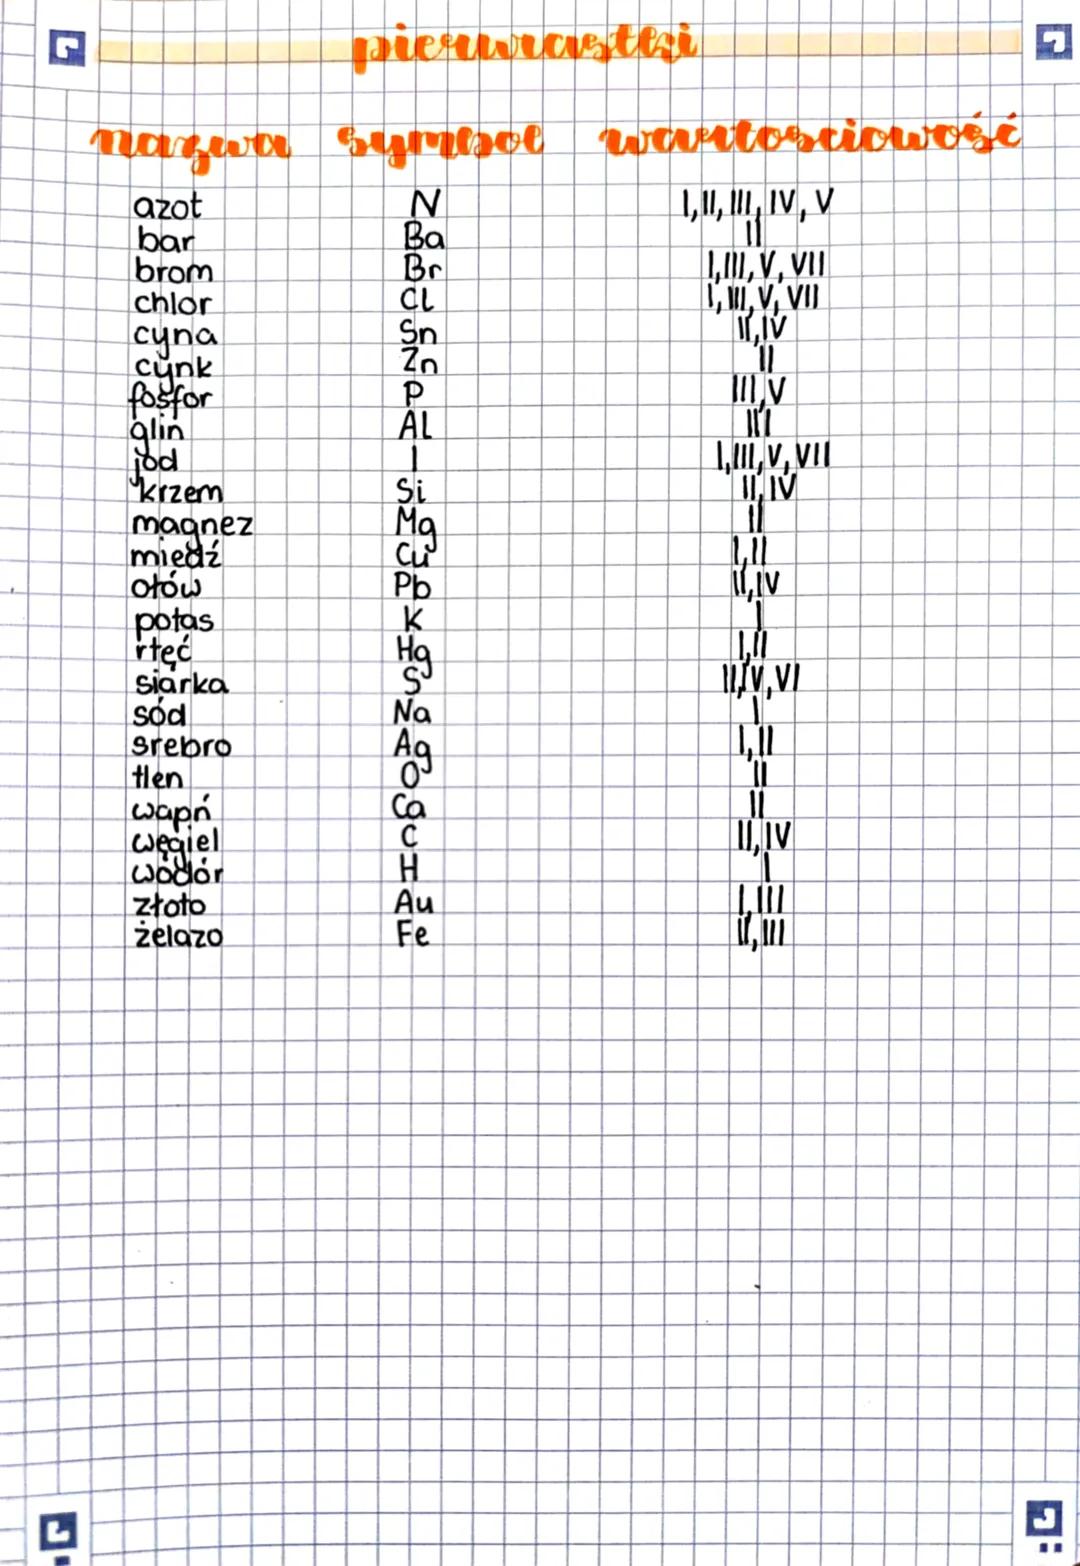 pierwiastki
nazwa symbol wartosciowość
azot N I, II, III, IV, V
bar Ba II
brom Br I, III, V, VII
chlor Cl I, III, V, VII
cyna Sn II, IV
cynk Zn II
fosfor P III, V
glin Al III
jod I I, III, V, VII
krzem Si II, IV
magnez Mg II
miedź Cu I, II
ołów Pb II, IV
potas K I
rtęć Hg I, II
siarka S II, IV, VI
sód Na I
srebro Ag I, II
tlen O II
wapń Ca II
węgiel C II, IV
wodór H I
złoto Au I, III
żelazo Fe II, III